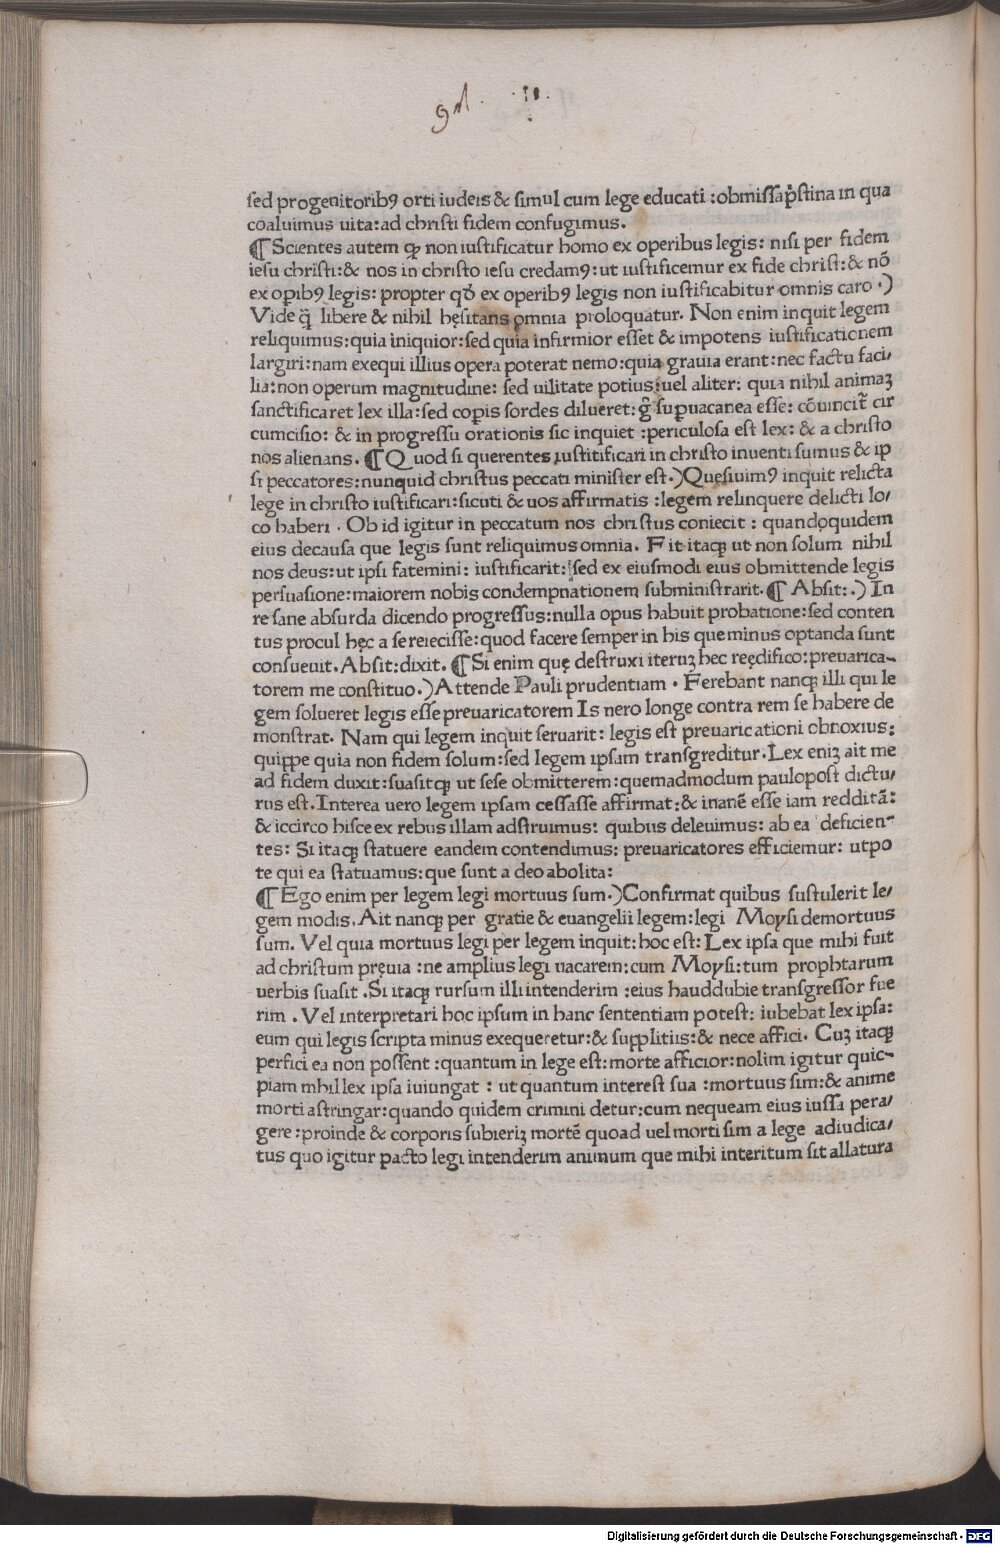 sed progenitoribꝯ orti iudeis & simul cum lege educati :obmissa pͥstina in qua
coaluimus uita:ad christi fidem confugimus.
¶ Scientes autem ꝙ non iustificatur homo ex operibus legis: nisi per fidem
iesu christi:& nos in christo iesu credamꝯ: ut iustificemur ex fide christ:& nō
ex oꝑibꝯ legis: propter qđ ex operibꝯ legis non iustificabitur omnis caro .)
Vide q̄ libere & nihil hęsitans omnia proloquatur. Non enim inquit legem
reliquimus:quia iniquior:sed quia infirmior esset & impotens iustificationem
largiri:nam exequi illius opera poterat nemo:quia grauia erant:nec factu faci/
lia:non operum magnitudine: sed uilitate potius:uel aliter: quia nihil animaꝝ
sanctificaret lex illa:sed corꝑis sordes dilueret:gͦ suꝑuacanea esse: cōuincit̄ cir
cumcisio: & in progressu orationis sic inquiet :periculosa est lex: & a christo
nos alienans. ¶ Quod si querentes iustitificari in christo inuenti sumus & ip
si peccatores:nunquid christus peccati minister est.)Quesiuimꝯ inquit relicta
lege in christo iustificari:sicuti & uos affirmatis :legem relinquere delicti lo/
co haberi . Ob id igitur in peccatum nos christus coniecit : quandoquidem
eius decausa que legis sunt reliquimus omnia. Fit itaqꝫ ut non solum nihil
nos deus:ut ipsi fatemini: iustificarit: sed ex eiusmodi eius obmittende legis
persuasione:maiorem nobis condempnationem subministrarit.¶ Absit:.) In
re sane absurda dicendo progressus:nulla opus habuit probatione:sed conten
tus procul hęc a se reiecisse:quod facere semper in his que minus optanda sunt
consueuit.Absit:dixit. ¶ Si enim quę destruxi iteruꝫ hec reędifico:preuarica-
torem me constituo.)Attende Pauli prudentiam . Ferebant nanqꝫ illi qui le
gem solueret legis esse preuaricatorem Is nero longe contra rem se habere de
monstrat. Nam qui legem inquit seruarit: legis est preuaricationi obnoxius:
quippe quia non fidem solum:sed legem ipsam transgreditur.Lex eniꝫ ait me
ad fidem duxit:suasitqꝫ ut sese obmitterem:quemadmodum paulopost dictu/
rus est.Interea uero legem ipsam cessasse affirmat:& inanē esse iam redditā:
& iccirco hisce ex rebus illam adstruimus: quibus deleuimus: ab ea deficien-
tes: Si itaqꝫ statuere eandem contendimus: preuaricatores efficiemur: utpo
te qui ea statuamus:que sunt a deo abolita:
¶ Ego enim per legem legi mortuus sum.)Confirmat quibus sustulerit le/
gem modis.Ait nanqꝫ per gratie & euangelii legem:legi Moysi demortuus
sum. Vel quia mortuus legi per legem inquit:hoc est: Lex ipsa que mihi fuit
ad christum pręuia :ne amplius legi uacarem:cum Moysi:tum prophtarum
uerbis suasit .Si itaqꝫ rursum illi intenderim :eius hauddubie transgressor fue
rim . Vel interpretari hoc ipsum in hanc sententiam potest: iubebat lex ipsa:
eum qui legis scripta minus exequeretur:& supplitiis:& nece affici. Cuꝫ itaqꝫ
perfici ea non possent :quantum in lege est:morte afficior:nolim igitur quic-
piam mhil lex ipsa iuiungat : ut quantum interest sua :mortuus sim:& anime
morti astringar:quando quidem crimini detur:cum nequeam eius iussa pera/
gere :proinde & corporis subieriꝫ mortē quoad uel morti sim a lege adiudica/
tus quo igitur pacto legi intenderim animum que mihi interitum sit allatura
Digitalisierung gefördert durch die Deutsche Forschungsgemeinschaft - DFG